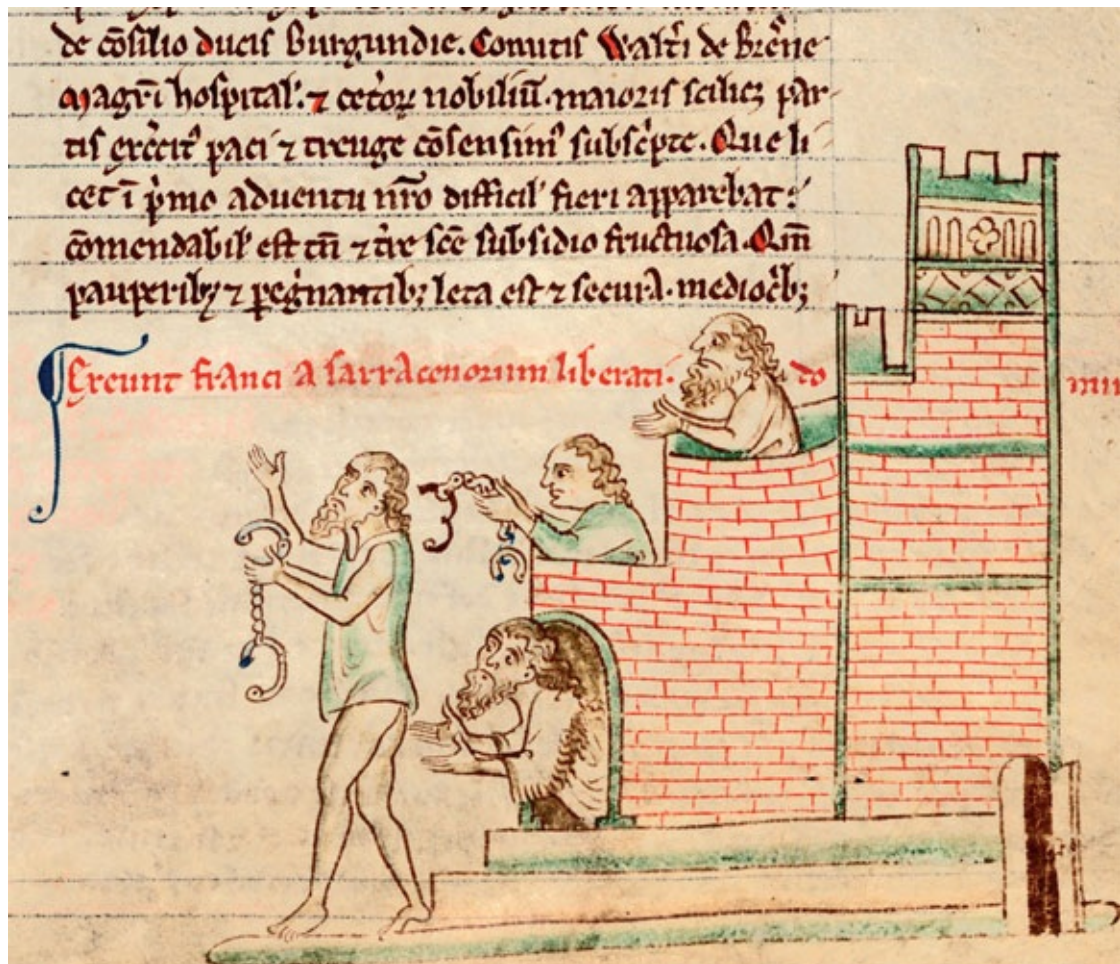 de cõsilio ducis Burgundie. Comitis Walt̃i de Brẽne
Magr̃i hospital̃. ⁊ cet̃oꝝ nobiliũ. maioris scilicꝫ par-
tis exercit᷒ paci ⁊ treuge cõsensim᷒ subsc̃pte. Que li
cet ĩ p̃mo aduentu nr̃o difficil̃ fieri apparebat:
cõmendabil̃ est tñ ⁊ t̃re sc̃e subsidio fructuosa. Qm̃
pauperibꝫ ⁊ peg̃nantibꝫ leta est ⁊ secura. medioc̃bꝫ
Exeunt franci a sarracenorum liberati. do mi